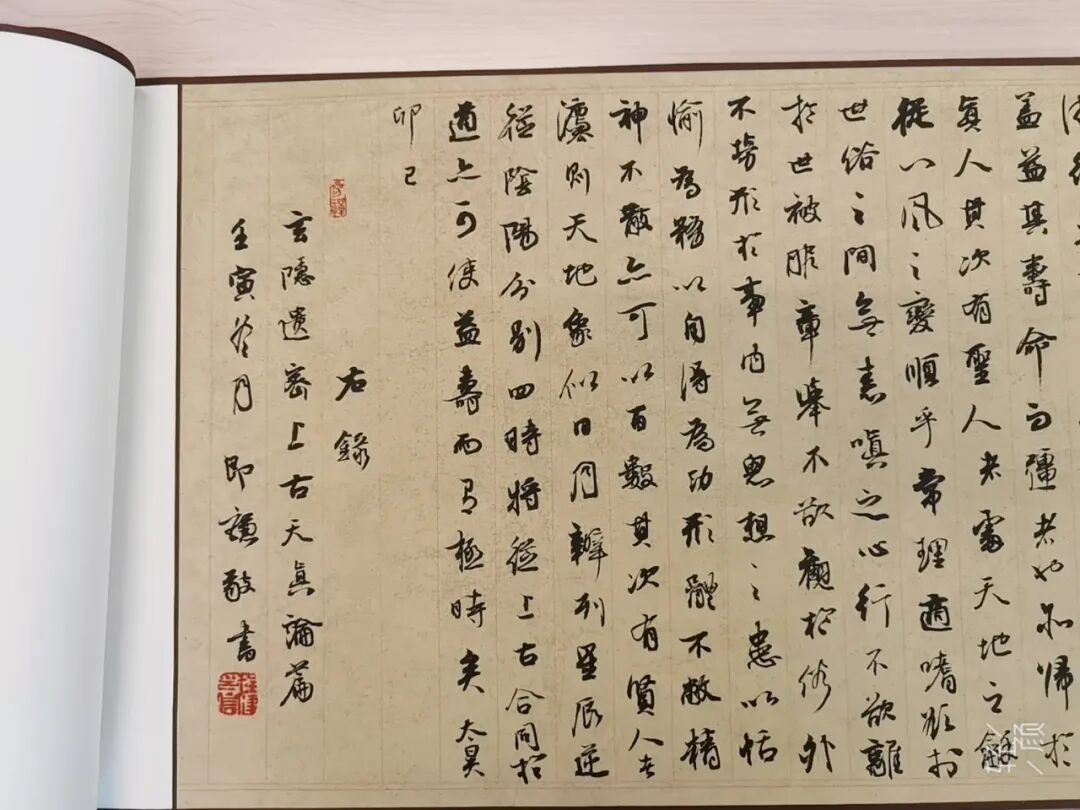 蓋益其壽命而彊者也亦歸於
真人其次有聖人者處天地之龢
從八風之變順乎常理適嗜欲於
世俗之間無恚嗔之心行不欲離
於世被服章舉不欲觀於俗外
不勞形於事內無思想之患以恬
愉為務以自得為功形體不敝精
神不散亦可以百數其次有賢人者
灋則天地象似日月辯列星辰逆
從陰陽分別四時將從上古合同於
道亦可使益壽而有極時矣 太昊
卯已
右錄
玄隱遺密上古天真論篇
壬寅冬月 即謙敬書